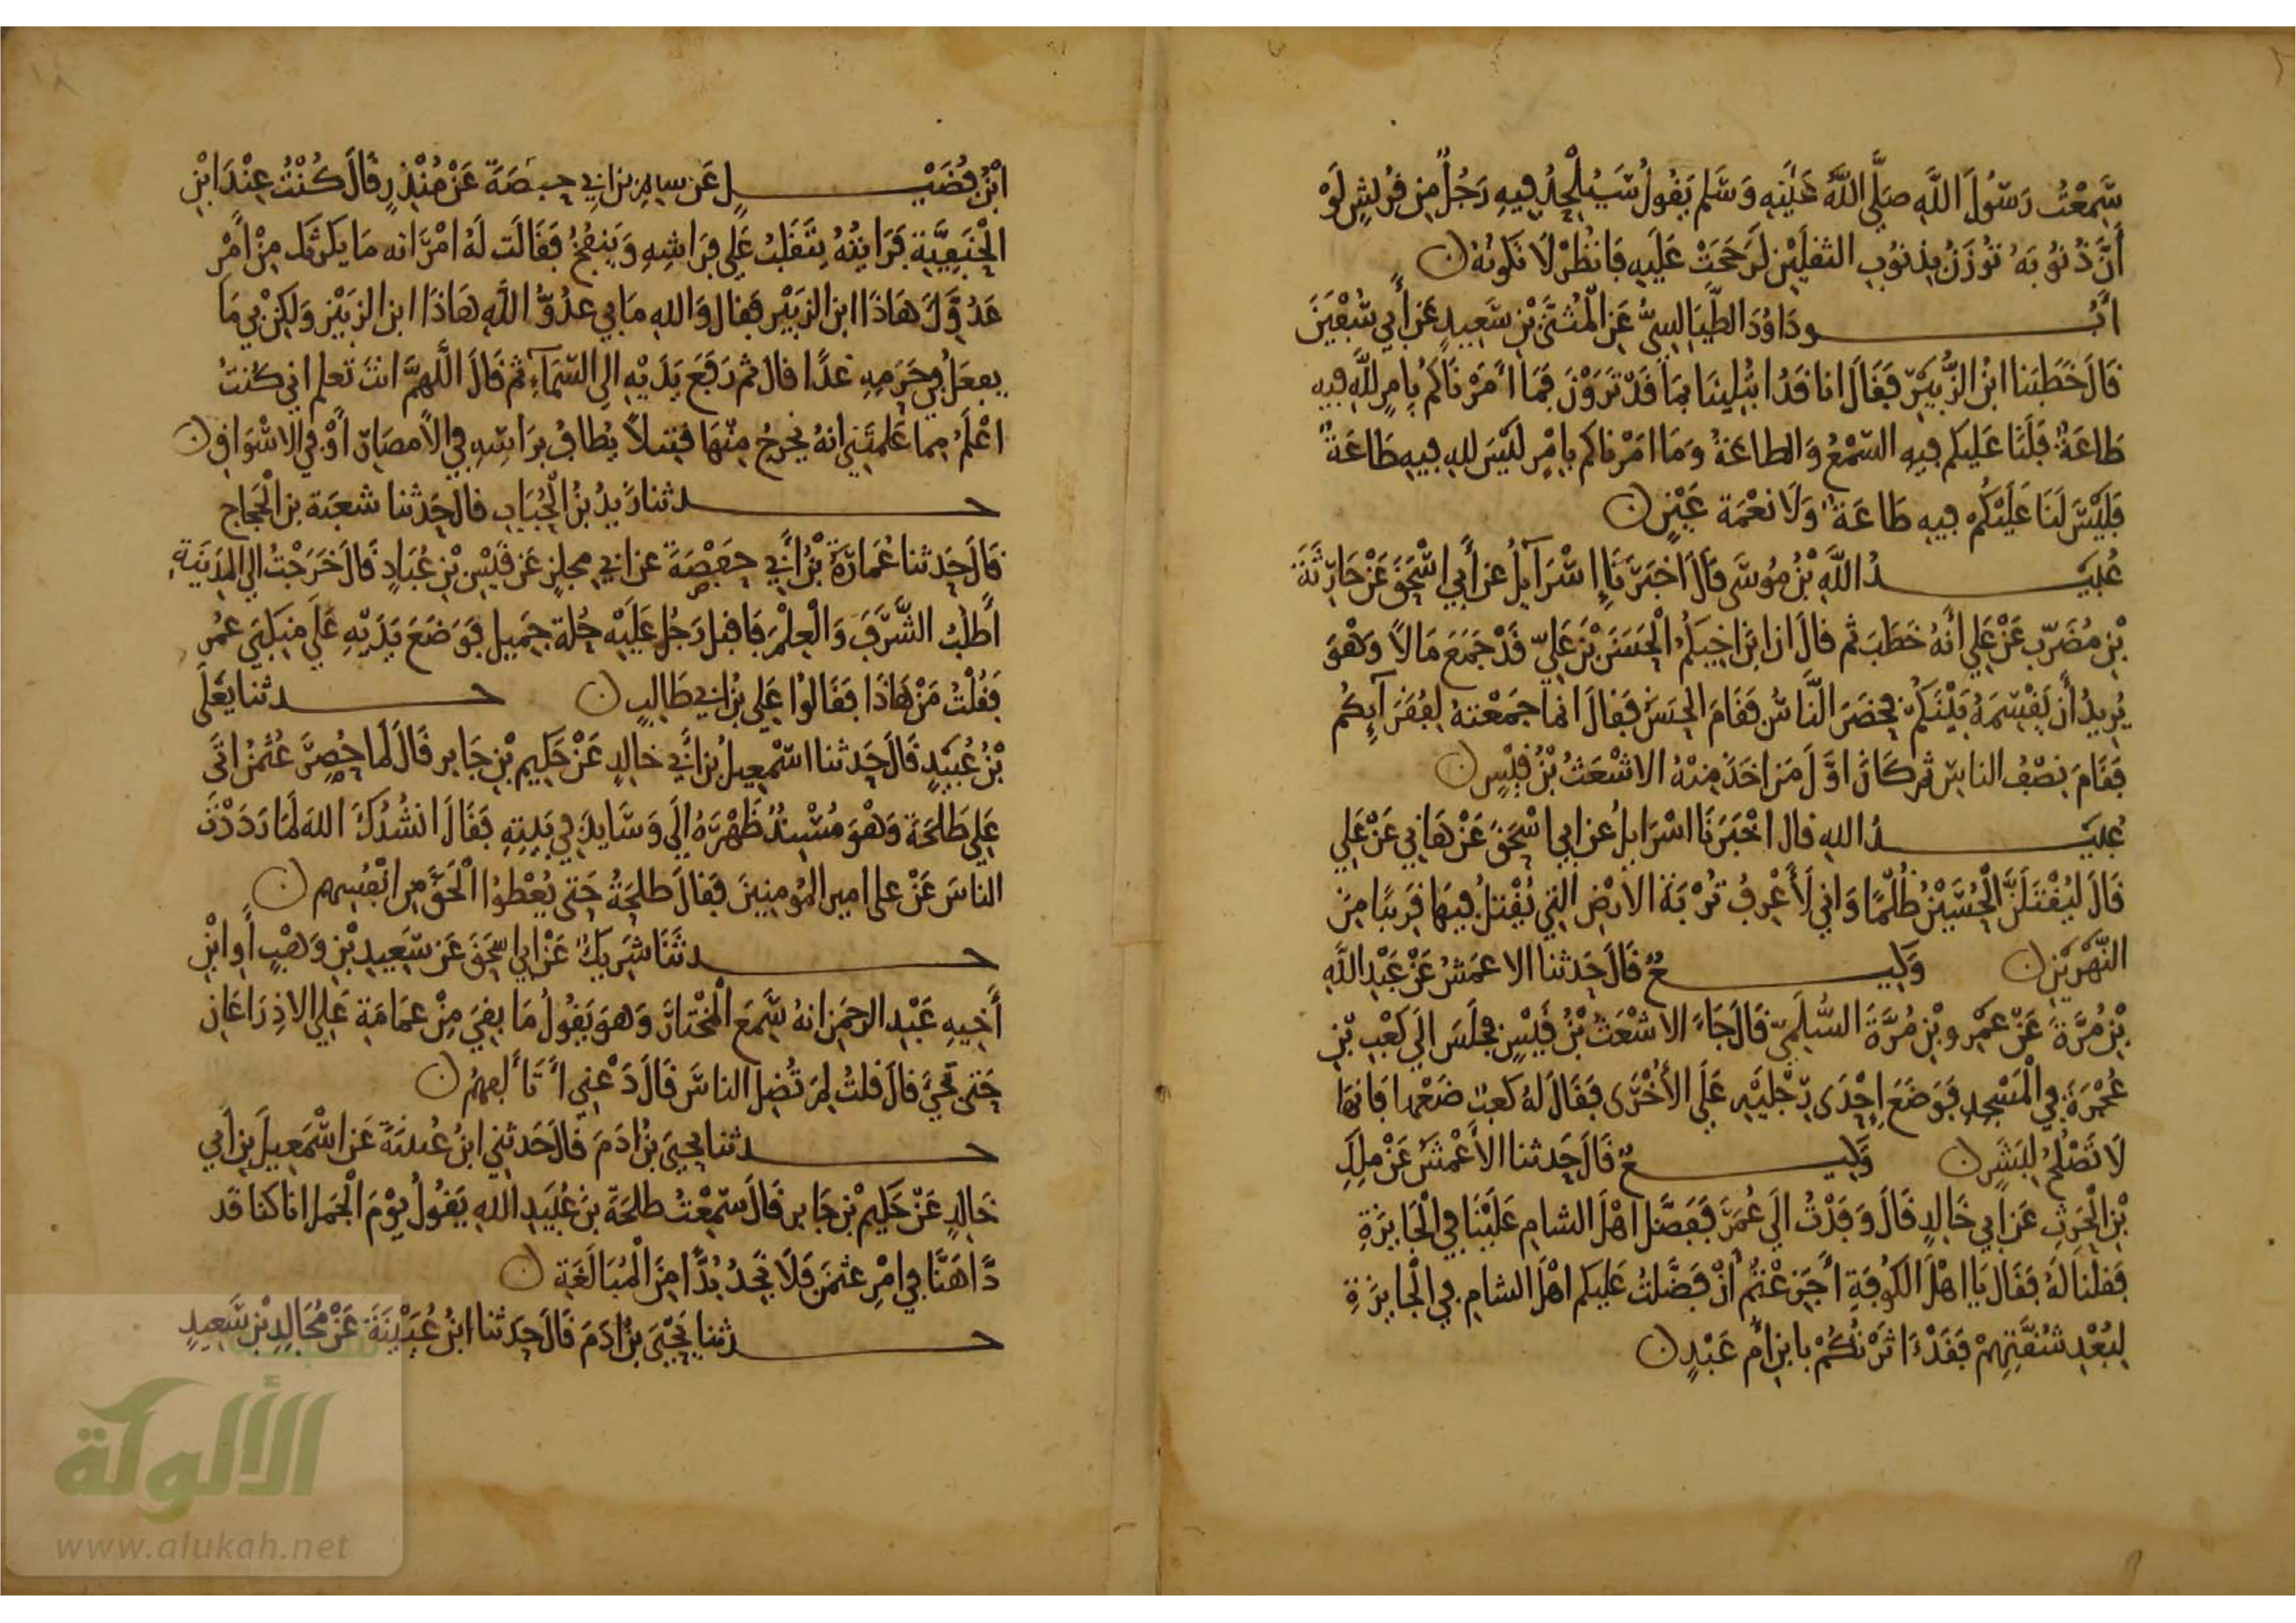 سَمِعْتُ رَسُولَ اللَّهِ صَلَّى اللَّهُ عَلَيْهِ وَسَلَّم يَقُولُ سَيُلْحِدُ فِيهِ رَجُلٌ مِن قُرَيْشٍ لَوْ
أَنَّ ذُنُوبَهُ تُوزَنُ بِذنُوبِ الثقلَيْنِ لَرَجَحَتْ عَلَيهِ فَانْظُرْ لَا تَكُونُهُ ن
أبُــو دَاوُدَ الطَّيَالِسِيُّ عَنِ الْمُثَنَّى بْنِ سَعِيدٍ عَن أَبِي سُفْيَنَ
قَالَ خَطَبَنا ابْنُ الزُّبَيْرِ فَقَالَ انا قَدُ ابْتُلِينَا بِمَا قَدْ تَرَوْنَ فَمَا أَمَرْنَاكُمْ بِأَمرٍ لِلَّهِ فِيهِ
طَاعَةٌ فَلَنَا عَلَيكم فِيهِ السَّمْعُ وَالطاعَةُ وَمَا امَرْنَاكم بِامْرٍ لَيْسَ للهِ فِيهِ طَاعَةٌ
فَلَيْسَ لَنَا عَلَيْكُمْ فِيهِ طَاعَةٌ وَلَا نعْمَة عَيْنٍ ن
عُبَيــدُ اللَّهِ بْنُ مُوسَى قَالَ اخبَرَنَا إِسْرَآيِلُ عَن أَبِي اسْحَقَ عَنْ حَارِثَةَ
بْنِ مُضَرِّبٍ عَنْ عَلِي أَنَّهُ خَطَبَ ثم قالَ ان ابْنَ اخِيكُمُ الْحَسَنَ بْنَ عَلِيّ قَدْ جَمَعَ مَالاً وَهْوَ
يُرِيدُ أَن يَقْسِمَهُ بَيْنَكُمْ فحَضَرَ النَّاسُ فَقَامَ الحَسَنُ فَقَالَ انما جَمَعْتهُ لِفُقَرَآيِكُمْ
فَقَامَ نِصْفُ الناسِ ثم كَانَ اوَّلَ مَن اخَذَ مِنْهُ الاشْعَثُ بْنُ قَيْسٍ ن
عُبَيــدُ اللهِ قال اخْبَرَنَا اسْرَايِلُ عن ابي اسْحَقَ عَنْ هَانِي عَنْ عَلِي
قَالَ لَيُقْتَلَنَّ الْحُسَيْنُ ظُلْمًا وَاني لَأَعْرِفُ تُرْبَةَ الأرْضِ التِي يُقْتلُ فِيهَا قَرِيبًا مِنَ
النَّهْرَيْنِ ن وَكِيــعٌ قَالَ حَدثنا الاعمَشُ عَنْ عَبْدِ اللَّهِ
بْنِ مُرَّةَ عَنْ عَمْرِو بْنِ مُرَّةَ السُّلَمِيّ قَالَ جَاءَ الاشْعَثُ بْنُ قَيْسٍ فجَلَسَ الَى كَعْبِ بْنِ
عُجْرَةَ فِي الْمَسْجِدِ فَوَضَعَ إِحْدَى رِجْلَيْهِ عَلَى الأُخْرَى فَقَالَ لهُ كَعبٌ ضَعْهَا فَانهَا
لَا تَصْلُحُ لِبَشَرٍ ن وَكِيــعٌ قَالَ حَدثنا الأَعْمَشُ عَنْ مَلِكِ
بْنِ الْحرِثِ عَن أَبِي خَالِدٍ قَالَ وَفَدْتُ الَى عُمَرَ فَفَضَّلَ اهْلَ الشامِ عَلَيْنَا فِي الْجَايِزَةِ
فَقلنَا لَهُ فَقَالَ يَا اهْلَ الكُوفَةِ أَجَزِعْتُمْ أَنْ فَضَّلتُ عَلَيكم اهْلَ الشام في الْجَايِزَةِ
لِبُعْدِ شُقَّتِهِمْ فَقَدْ ءَاثَرْتُكُمْ بابنِ أُمِّ عَبْدٍ ن
ابْنُ فُضَيْــلٍ عَن سالم بن ابي حفصَةَ عَنْ مُنْذِرٍ قَالَ كُنْتُ عِنْدَ ابْنِ
الْحَنَفِيَّةِ فَرَايتُهُ يَتَقَلَّبُ عَلَى فِرَاشِهِ وَيَنفُخُ فَقَالَت لَهُ امْرَاته مَا يكرثك مِنْ امْرِ
عَدُوِّكَ هَاذَا ابن الزبَيْرِ فقال وَاللهِ مَا بي عدُوُّ اللَّهِ هَاذَا ابن الزبَيْرِ وَلكِنْ بِي مَا
يفعَلُ فِي حَرَمِهِ غدًا قال ثم رَفَعَ يَدَيْهِ الى السَّمَآءِ ثم قَالَ اللَّهُمَّ انتَ تَعلم اني كُنتُ
اعْلَمُ مِما عَلمتَنِي انهُ يَخرجُ مِنْهَا قتيلاً يُطافُ بِرَاسِهِ فِي الأمصَارِ أَوْ فِي الاسْوَاقِ ن
حــدثنا زَيدُ بْنُ الْحُبَابِ قال حَدثنا شعبَة بن الْحَجاج
قَالَ حَدثنا عُمَارَةُ بْنُ أَبِي حَفْصَةَ عن ابي مجلزٍ عَن قَيْسِ بْنِ عُبَادٍ قَالَ خَرَجْتُ الى الْمَدِينَةِ
أَطلبُ الشَّرَفَ وَالْعِلْمَ فَاقبل رَجُل عَلَيْهِ حُلة جَمِيل فَوَضَعَ يَدَيْهِ عَلَى مَنكِبَي عمر
فَقُلْتُ مَنْ هَاذَا فَقَالُوا عَلِي بْنُ ابي طَالِبٍ ن حــدثنا يَعْلَى
بْنُ عُبَيْدٍ قَالَ حَدثنا اسْمعِيلُ بْنُ أَبِي خالِدٍ عَنْ حَكِيمِ بْنِ جَابر قَالَ لَما حُصِرَ عُثمنُ اتَى
عَلِي طَلحَةَ وَهْوَ مُسْنِدٌ ظَهْرَهُ الَى وَسَايِدَ فِي بَيتِهِ فَقَالَ انشُدُكَ اللهَ لَمَا رَدَدْتَ
الناسَ عَنْ على امير المُومنِينَ فَقَالَ طلحَةُ حَتى يُعْطُوا الْحَقَّ مِن انْفُسِهم ن
حــدثَنَا شَرِيكٌ عَنْ ابي اسحَقَ عَن سَعِيدِ بْنِ وَهْبٍ أَو ابْنِ
أَخِيهِ عَبْدِ الرحمَنِ انهُ سَمعَ الْمُخْتَارَ وَهوَ يَقُولُ مَا بقيَ مِنْ عمَامَة عَلِي الا ذِرَاعَانِ
حَتى تجيَ قالَ قلتُ لِمَ تُضِل الناسَ قَالَ دَعْنِي أَتَأَلفهمْ ن
حــدثنا يحيى بْنُ ادَمَ قَالَ حَدثنِي ابنُ عُيينَةَ عَن اسْمَعِيلَ بنِ أَبي
خَالِدٍ عَنْ حَكِيم بْنِ جَابر قَالَ سَمِعْتُ طلحَة بنَ عُبَيدِ اللهِ يَقُولُ يوْمَ الْجَمل انا كنا قَد
دَاهَنَّا فِي امْرِ عثمَنَ فَلَا نَجِدُ بُدًّا مِنَ الْمُبَالَغَةِ ن
حــدثنا يَحْيَى بْنُ ادَمَ قَالَ حَدثنا ابنُ عُيَيْنَةَ عَنْ مُجَالِدِ بْنِ سَعِيدٍ
الألوكة
www.alukah.net